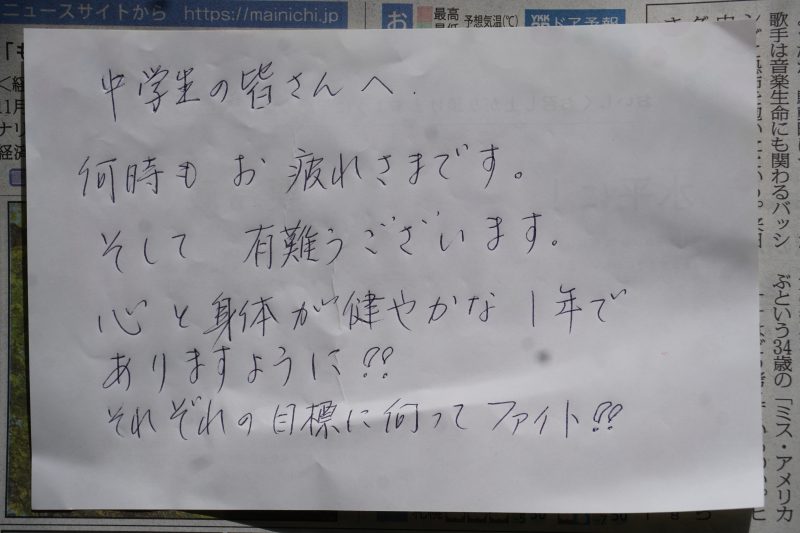 ニュースサイトから https://mainichi.jp/
お
最高
予想気温(℃)
ドア予報
中学生の皆さんへ.
何時も お 疲れさまです。
そして 有難うございます。
心と身体が健やかな 1年で
ありますように!!
それぞれの目標に向ってファイト!!
歌手は音楽生命にも関わるバッシ
ぶという34歳の「ミス・アメリカ